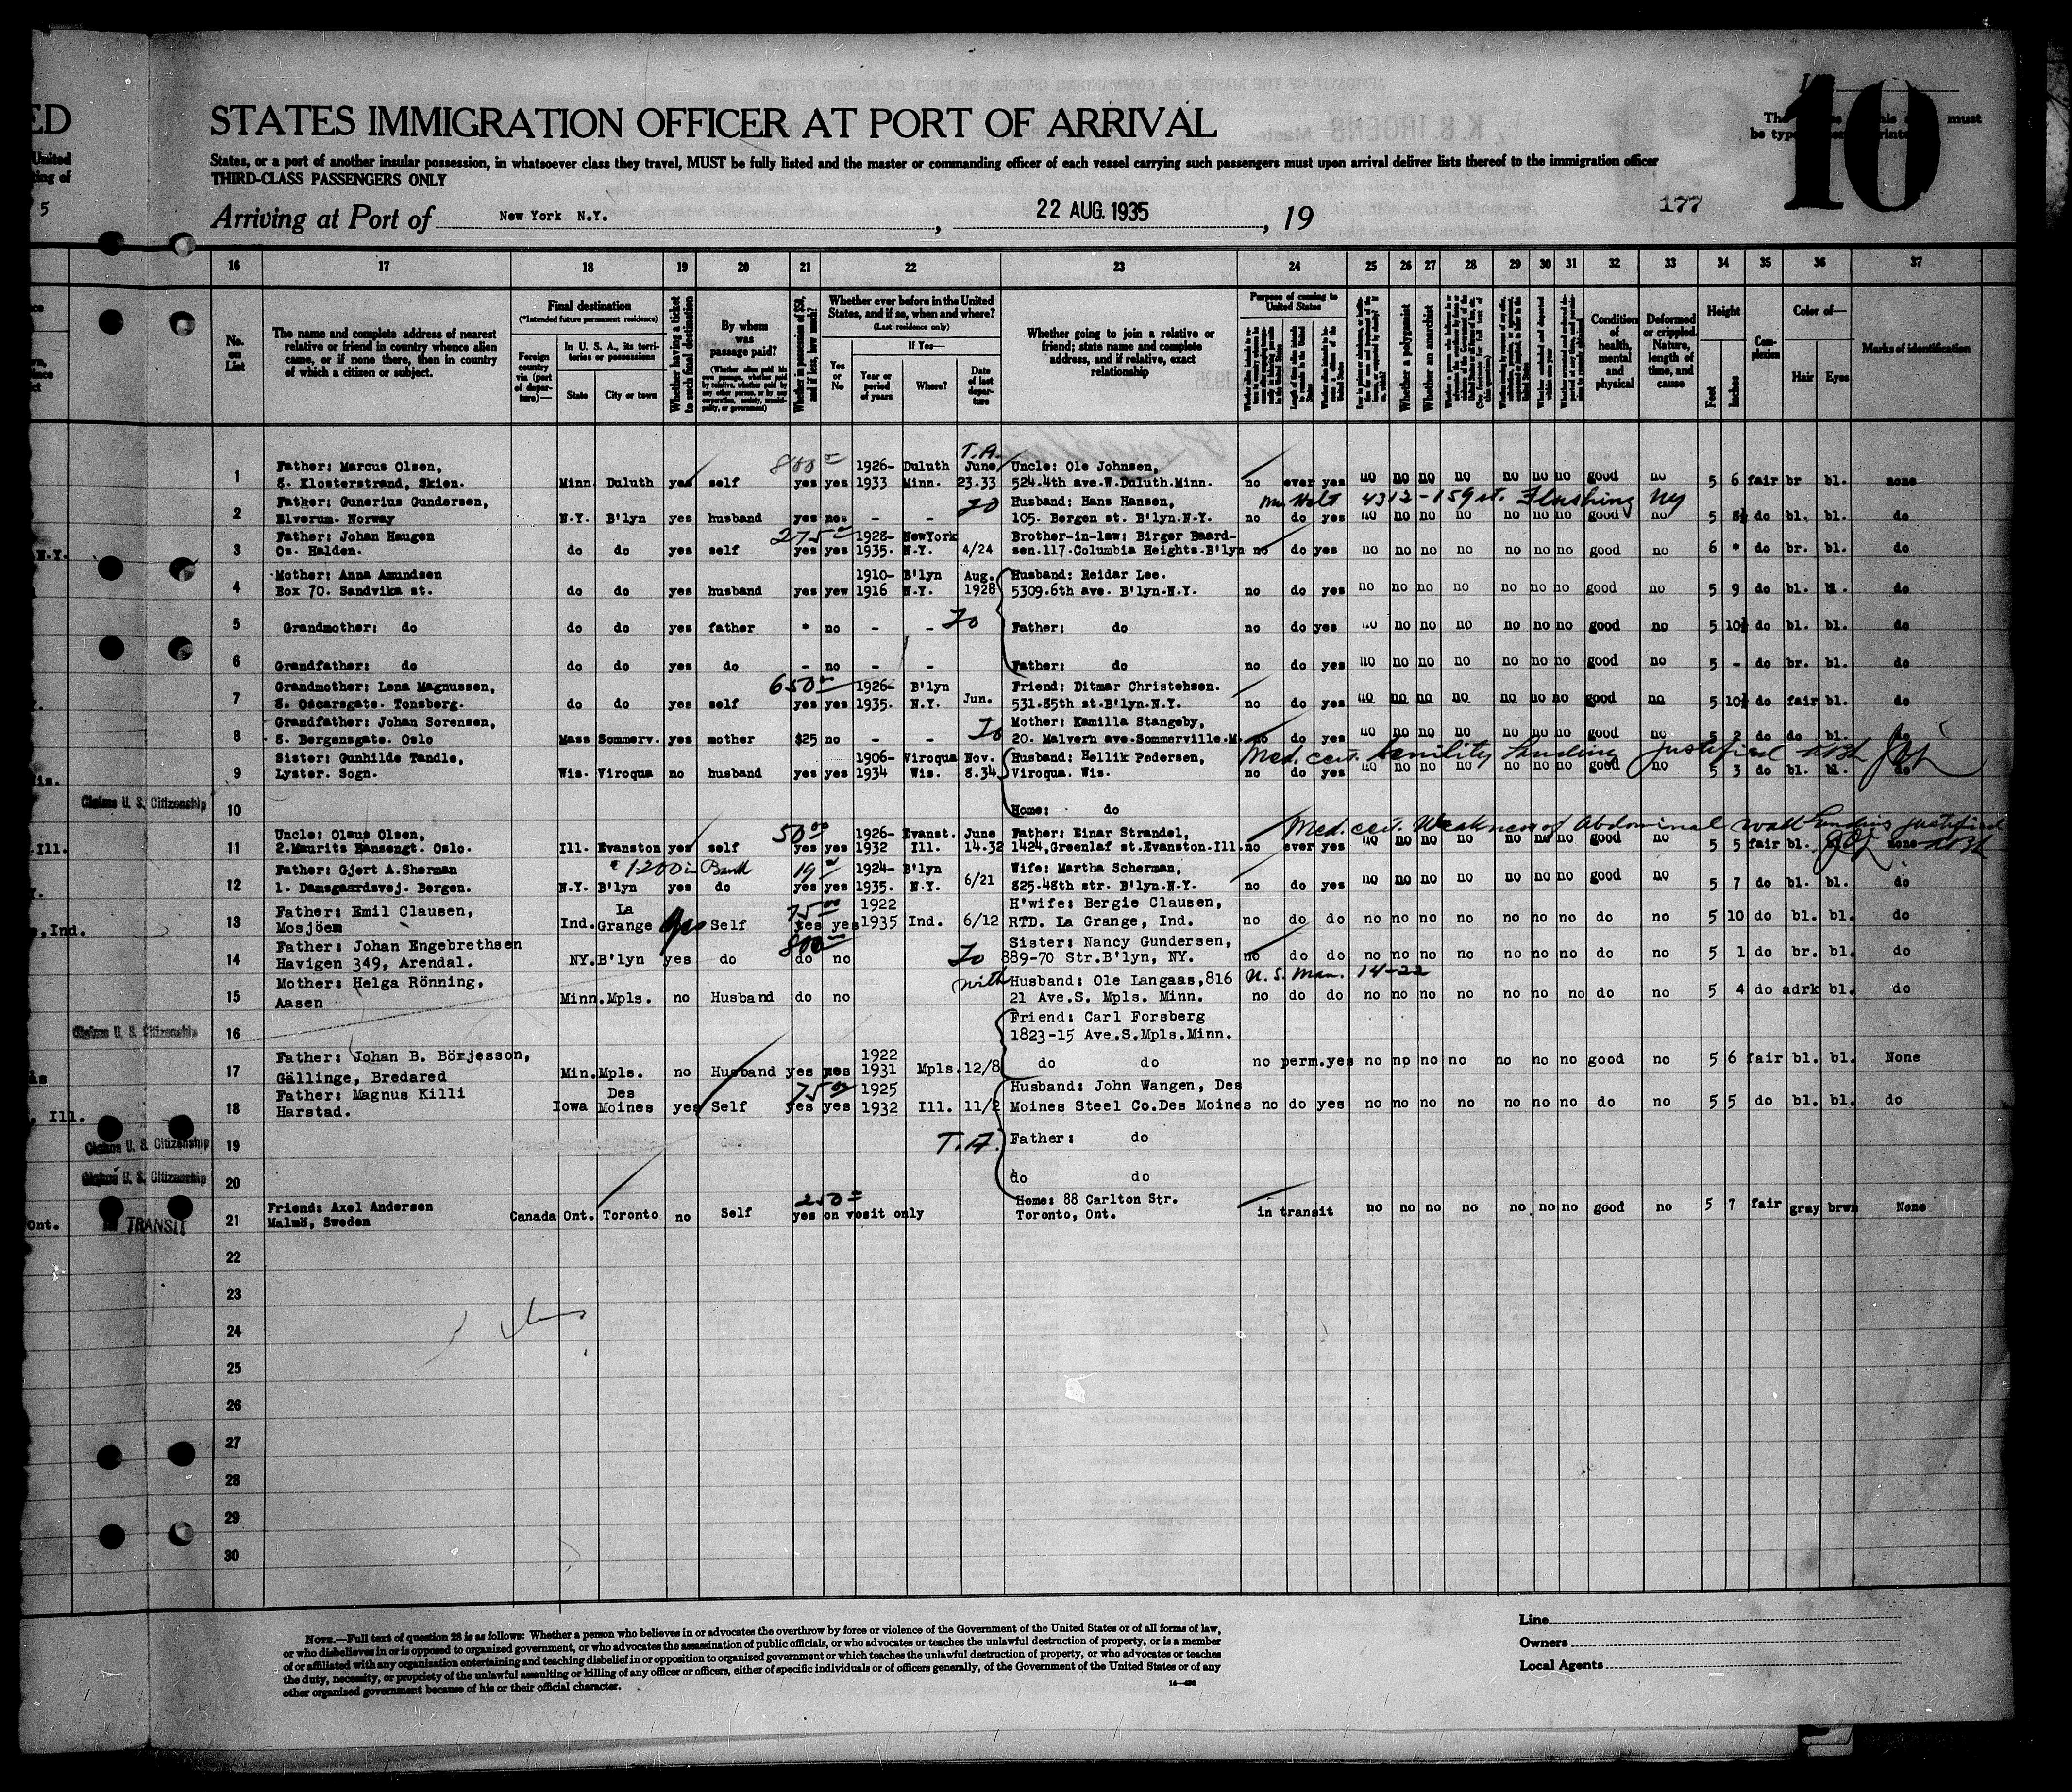 10
ED
STATES IMMIGRATION OFFICER AT PORT OF ARRIVAL
United
States, or a port of another insular possession, in whatsoever class they travel, MUST be fully listed and the master or commanding officer of each vessel carrying such passengers must upon arrival deliver lists thereof to the immigration officer
THIRD-CLASS PASSENGERS ONLY
177
5
Arriving at Port of New York N.Y. , 22 AUG. 1935 , 19
16 17 18 19 20 21 22 23 24 25 26 27 28 29 30 31 32 33 34 35 36 37
No. on List
The name and complete address of nearest relative or friend in country whence alien came, or if none there, then in country of which a citizen or subject.
Final destination
(*Intended future permanent residence)
Foreign country via (port of departure)—
In U. S. A., its territories or possessions
State
City or town
Whether having a ticket to such final destination
By whom was passage paid?
(Whether alien paid his own passage, whether paid by relative, whether paid by any other person, or by any corporation, society, municipality, or government)
Whether in possession of $50, and if less, how much?
Whether ever before in the United States, and if so, when and where?
(Last residence only)
Yes or No
If Yes—
Year or period of years
Where?
Date of last departure
Whether going to join a relative or friend; state name and complete address, and if relative, exact relationship
Purpose of coming to United States
Whether a polygamist
Whether an anarchist
Condition of health, mental and physical
Deformed or crippled. Nature, length of time, and cause
Height
Feet
Inches
Complexion
Color of—
Hair
Eyes
Marks of identification
800 T.A.
1 Father: Marcus Olsen, 1926- Duluth June Uncle: Ole Johnsen,
8. Klosterstrand, Skien. Minn. Duluth yes self yes yes 1933 Minn. 23.33 524.4th ave.W.Duluth.Minn. no ever yes no no no no no no no good no 5 6 fair br bl. none
2 Father: Gunerius Gundersen, Husband: Hans Hansen, Mr. Holt 4312-159 st. Flushing NY
Elverum. Norway N.Y. B'lyn yes husband yes - - 105. Bergen st. B'lyn.N.Y. no do yes no no no no no no no good no 5 8½ do bl. bl. do
3 Father: Johan Haugen 275 1928- NewYork Brother-in-law: Birger Baard-
Os. Halden. do do yes self yes yes 1935. N.Y. 4/24 sen.117.Columbia Heights.B'lyn no do yes no no no no no no no good no 6 " do br. bl. do
4 Mother: Anna Amundsen 1910- B'lyn Aug. Husband: Reidar Lee.
Box 70. Sandvika st. do do yes husband yes yew 1916 N.Y. 1928 5309.6th ave. B'lyn.N.Y. no do yes no no no no no no no good no 5 9 do bl. bl. do
5 Grandmother: do do do yes father " no - - Father: do no do yes no no no no no no no good no 5 10½ do bl. bl. do
6 Grandfather: do do do yes do - no - - Father: do no do yes no no no no no no no good no 5 - do br. bl. do
7 Grandmother: Lena Magnussen, 650 1926- B'lyn Jun. Friend: Ditmar Christehsen.
8. Oscarsgate. Tonsberg. do do yes self yes yes 1935. N.Y. 531.85th st.B'lyn.N.Y. no do yes no no no no no no no good no 5 10½ do fair bl. do
8 Grandfather: Johan Sorensen, Mother: Kamilla Stangeby,
8. Bergensgate. Oslo Mass Sommerv. yes mother $25 no - - 20. Malvern ave.Sommerville.M. no do yes no no no no no no no good no 5 2 do do bl. do
Med. cert. Senility Landing justified
9 Sister: Gunhilde Tandle, 1906- Viroqua Nov. Husband: Hellik Pedersen,
Lyster. Sogn. Wis. Viroqua no husband yes yes 1934 Wis. 8.34 Viroqua. Wis. no do yes no no no no no no no good no 5 3 do bl. bl. do
Claims U. S. Citizenship
10 Home: do
50 Med. cert. Weakness of Abdominal wall Landing justified
11 Uncle: Olaus Olsen, 1926- Evanst. June Father: Einar Strandel,
2.Maurits Hansengt. Oslo. Ill. Evanston yes self yes yes 1932 Ill. 14.32 1424,Greenlaf st.Evanston.Ill. no ever yes no no no no no no no good no 5 5 fair bl. none
12 Father: Gjert A.Sherman 1200 in Bank 19 1924- B'lyn Wife: Martha Scherman,
1. Damsgaardsvej. Bergen. N.Y. B'lyn yes do yes yes 1935. N.Y. 6/21 825.48th str. B'lyn.N.Y. no do yes no no no no no no no good no 5 7 do bl. bl. do
13 Father: Emil Clausen, La 75 1922 H'wife: Bergie Clausen,
Mosjöen Ind. Grange yes Self yes yes 1935 Ind. 6/12 RTD. La Grange, Ind. no do do no no no no no no no do no 5 10 do bl. bl. do
14 Father: Johan Engebrethsen 800 Sister: Nancy Gundersen,
Havigen 349, Arendal. NY. B'lyn yes do do no 889-70 Str.B'lyn, NY. no do do no no no no no no no do no 5 1 do br. bl. do
15 Mother: Helga Rönning, with Husband: Ole Langaas,816 U.S. Man. 14-22
Aasen Minn. Mpls. no Husband do no 21 Ave.S. Mpls. Minn. no do do no no no no no no no do no 5 4 do adrk bl. do
Claims U. S. Citizenship
16 Friend: Carl Forsberg
1823-15 Ave.S.Mpls.Minn.
17 Father: Johan B. Börjesson, 1922 do do
Gällinge, Bredared Min. Mpls. no Husband yes yes 1931 Mpls. 12/8 no perm. yes no no no no no no no good no 5 6 fair bl. bl. None
18 Father: Magnus Killi Des 75 1925 Husband: John Wangen, Des
Harstad. Iowa Moines yes Self yes yes 1932 Ill. 11/2 Moines Steel Co.Des Moines no do yes no no no no no no no do no 5 5 do bl. bl. do
Claims U. S. Citizenship
19 T.A. Father: do
Claims U. S. Citizenship
20 do do
250 Home: 88 Carlton Str.
21 Friend: Axel Andersen
Malmö, Sweden Canada Ont. Toronto no Self yes on vosit only Toronto, Ont. in transit no no no no no no no good no 5 7 fair gray brwn None
IN TRANSIT
22
23
24
25
26
27
28
29
30
NOTE.—Full text of question 28 is as follows: Whether a person who believes in or advocates the overthrow by force or violence of the Government of the United States or of all forms of law,
or who disbelieves in or is opposed to organized government, or who advocates the assassination of public officials, or who advocates or teaches the unlawful destruction of property, or is a member
of or affiliated with any organization entertaining and teaching disbelief in or opposition to organized government or which teaches the unlawful destruction of property, or who advocates or teaches
the duty, necessity, or propriety of the unlawful assaulting or killing of any officer or officers, either of specific individuals or of officers generally, of the Government of the United States or of any
other organized government because of his or their official character.
Line
Owners
Local Agents